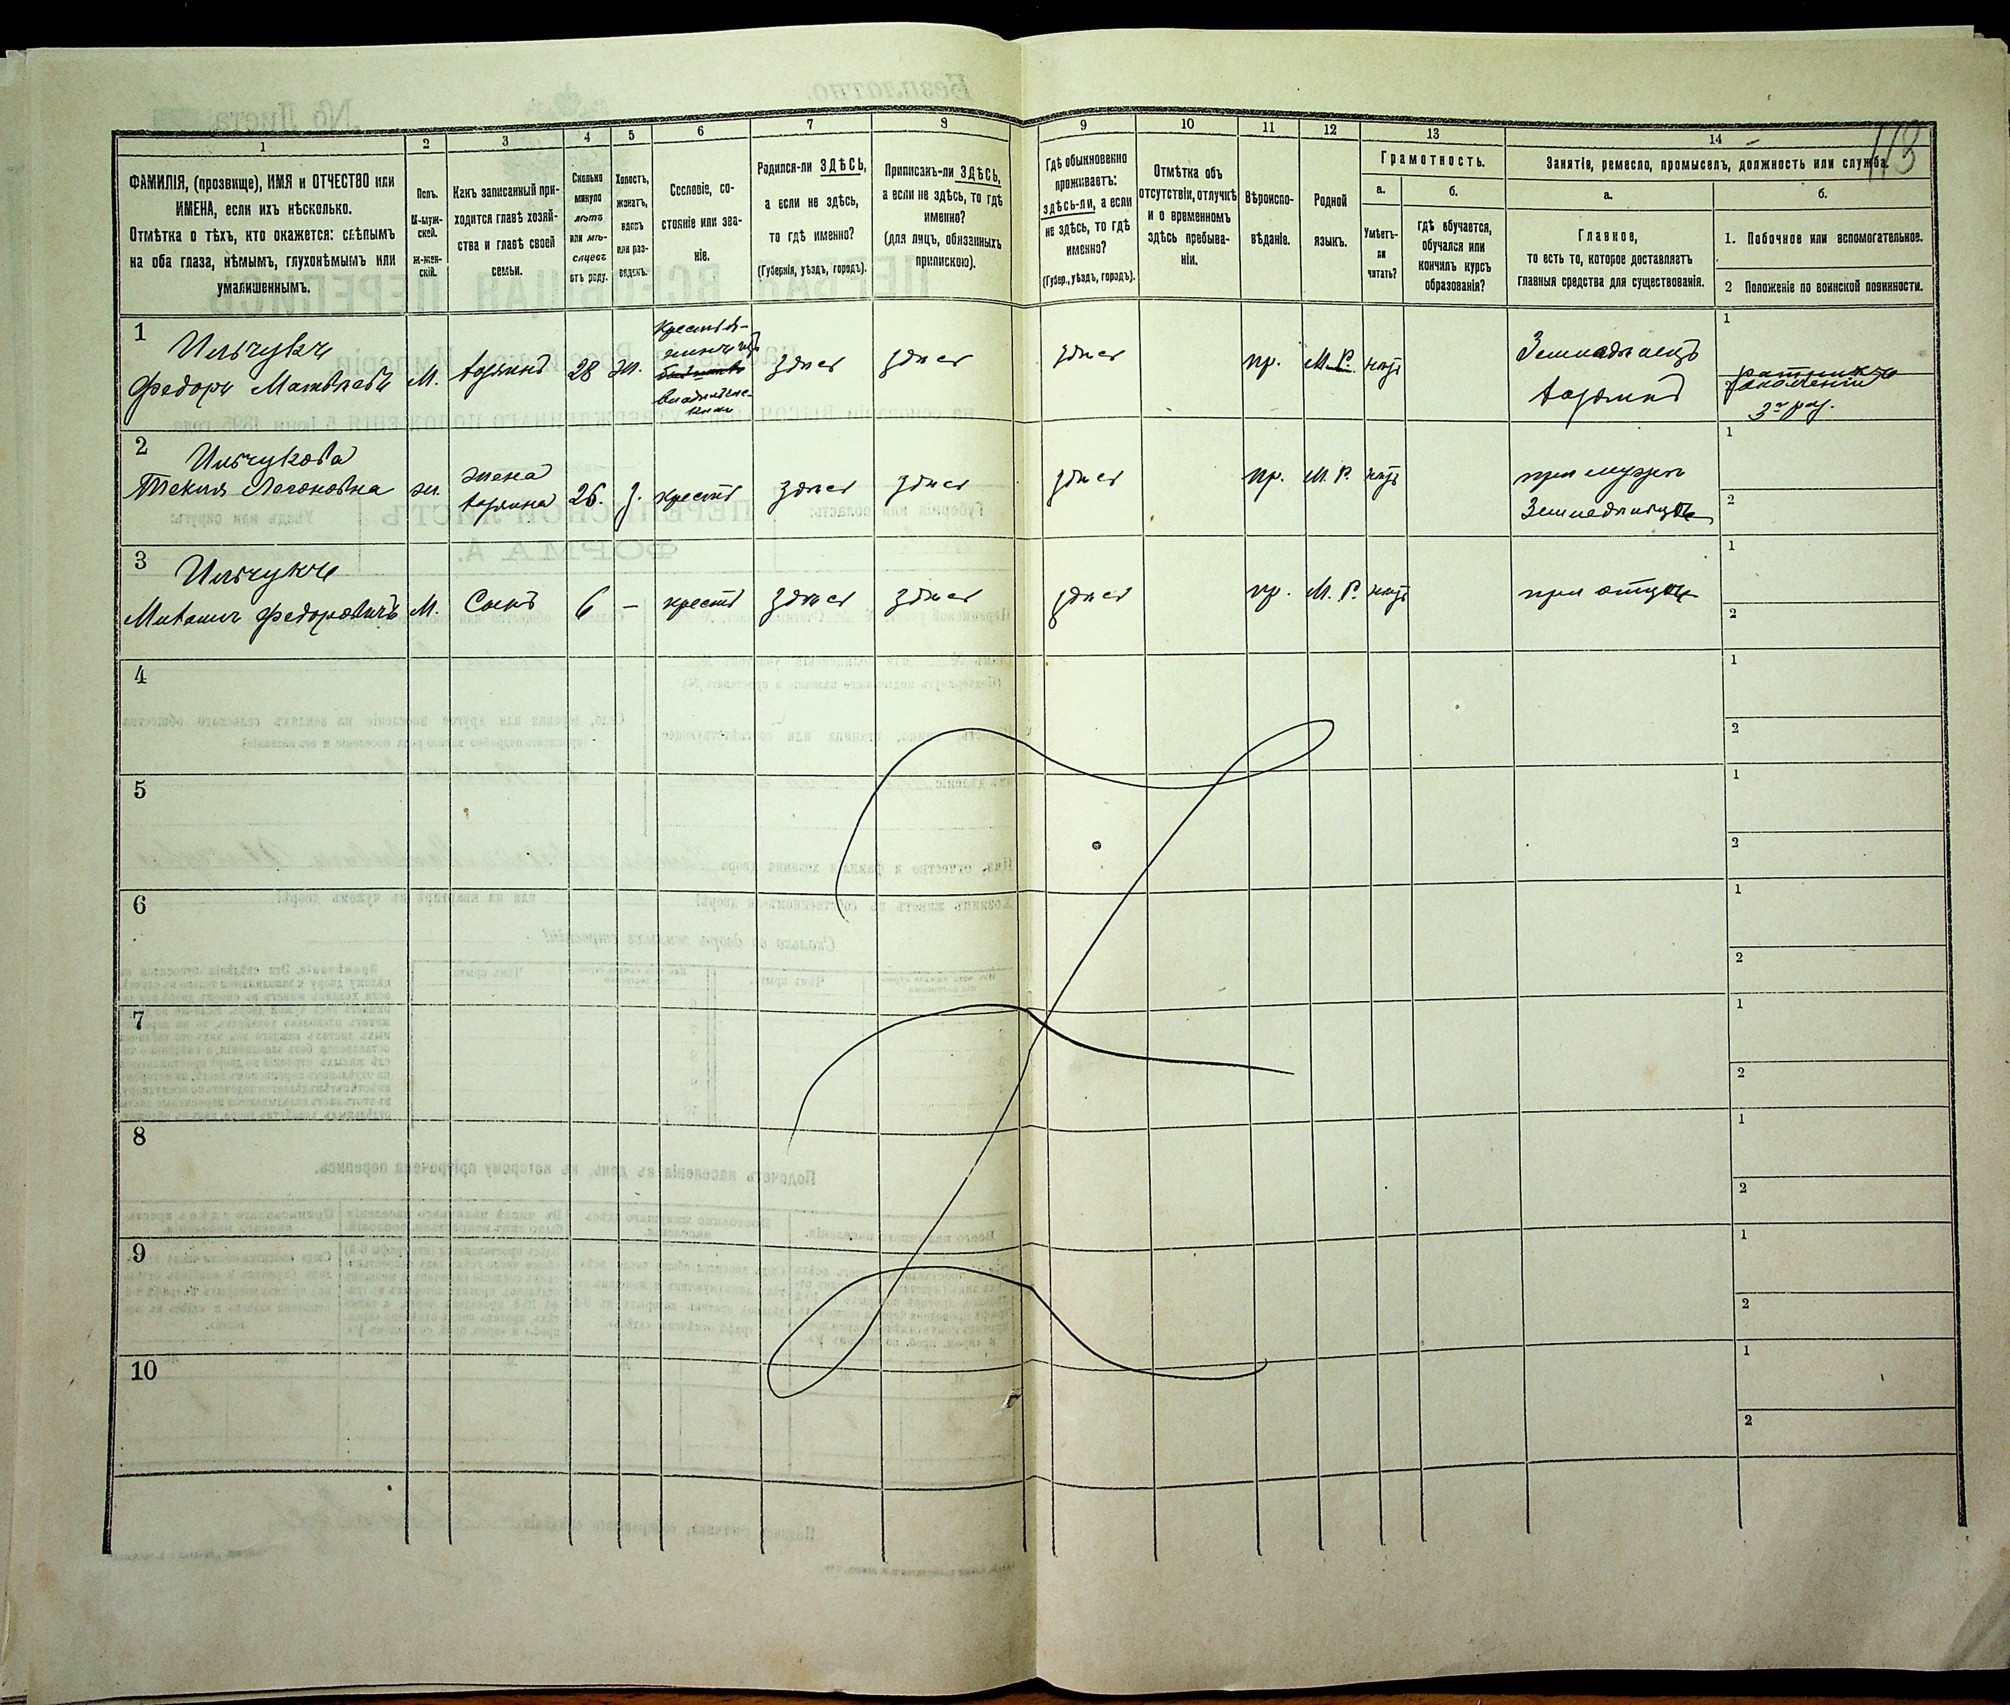 118
1 2 3 4 5 6 7 8 9 10 11 12 13 14
ФАМИЛІЯ, (прозвище), ИМЯ и ОТЧЕСТВО или
ИМЕНА, если ихъ нѣсколько.
Отмѣтка о тѣхъ, кто окажется: слѣпымъ
на оба глаза, нѣмымъ, глухонѣмымъ или
умалишеннымъ.
Полъ.
М-муж-
ской.
ж-жен-
скій.
Какъ записанный при-
ходится главѣ хозяй-
ства и главѣ своей
семьи.
Сколько
минуло
лѣтъ
или мѣ-
сяцевъ
отъ роду.
Холостъ,
женатъ,
вдовъ
или раз-
веденъ.
Сословіе, со-
стояніе или зва-
ніе.
Родился-ли ЗДѢСЬ,
а если не здѣсь,
то гдѣ именно?
(Губернія, уѣздъ, городъ).
Приписанъ-ли ЗДѢСЬ,
а если не здѣсь, то гдѣ
именно?
(для лицъ, обязанныхъ
припискою).
Гдѣ обыкновенно
проживаетъ:
здѣсь-ли, а если
не здѣсь, то гдѣ
именно?
(Губер., уѣздъ, городъ).
Отмѣтка объ
отсутствіи, отлучкѣ
и о временномъ
здѣсь пребыва-
ніи.
Вѣроиспо-
вѣданіе.
Родной
языкъ.
Грамотность.
а.
Умѣетъ-
ли
читать?
б.
гдѣ обучается,
обучался или
кончилъ курсъ
образованія?
Занятіе, ремесло, промыселъ, должность или служба.
а.
Главное,
то есть то, которое доставляетъ
главныя средства для существованія.
б.
1. Побочное или вспомогательное.
2 Положеніе по воинской повинности.
1
Ильчукъ
Федоръ Матвѣевъ
М.
хозяинъ
28
ж.
Крестья-
нинъ изъ
владѣльче-
скихъ
здѣсь
здѣсь
здѣсь
пр.
М. Р.
нѣтъ
Земледѣлецъ
хозяинъ
1
ратникъ
ополченія
2
Ильчукова
Текля Леоновна
ж.
жена
хозяина
26.
з.
крест.
здѣсь
здѣсь
здѣсь
пр.
М. Р.
нѣтъ
при мужѣ
Земледѣльцѣ
1
2
3
Ильчукъ
Федоровичъ
М.
Сынъ
6
–
крест.
здѣсь
здѣсь
здѣсь
пр.
М. Р.
нѣтъ
при отцѣ
1
2
4
1
2
5
1
2
6
1
2
7
1
2
8
1
2
9
1
2
10
1
2